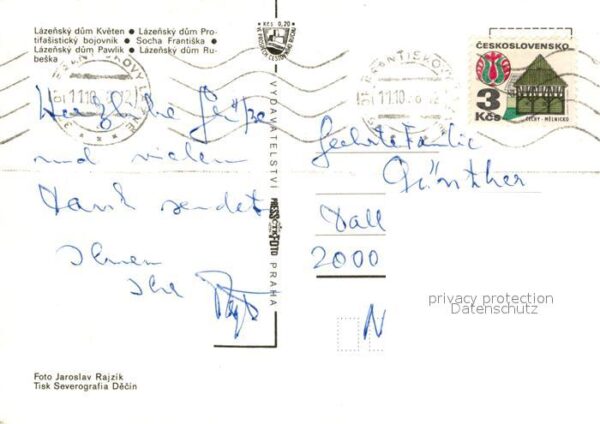 Lázeňský dům Květen • Lázeňský dům Pro-
tifašistický bojovník • Socha Františka •
Lázeňský dům Pawlik • Lázeňský dům Ru-
beška
Kčs 0,20
ČESKOSLOVENSKO
3
Kčs
ČECHY - MĚLNICKO
11.10.
11.10.
Herzliche Grüße
und vielen
Dank sendet
Ihnen
Ihr
VYDAVATELSTVÍ PRESSFOTO PRAHA
Geehrte Familie
Günther
2000
N
privacy protection
Datenschutz
Foto Jaroslav Rajzík
Tisk Severografia Děčín